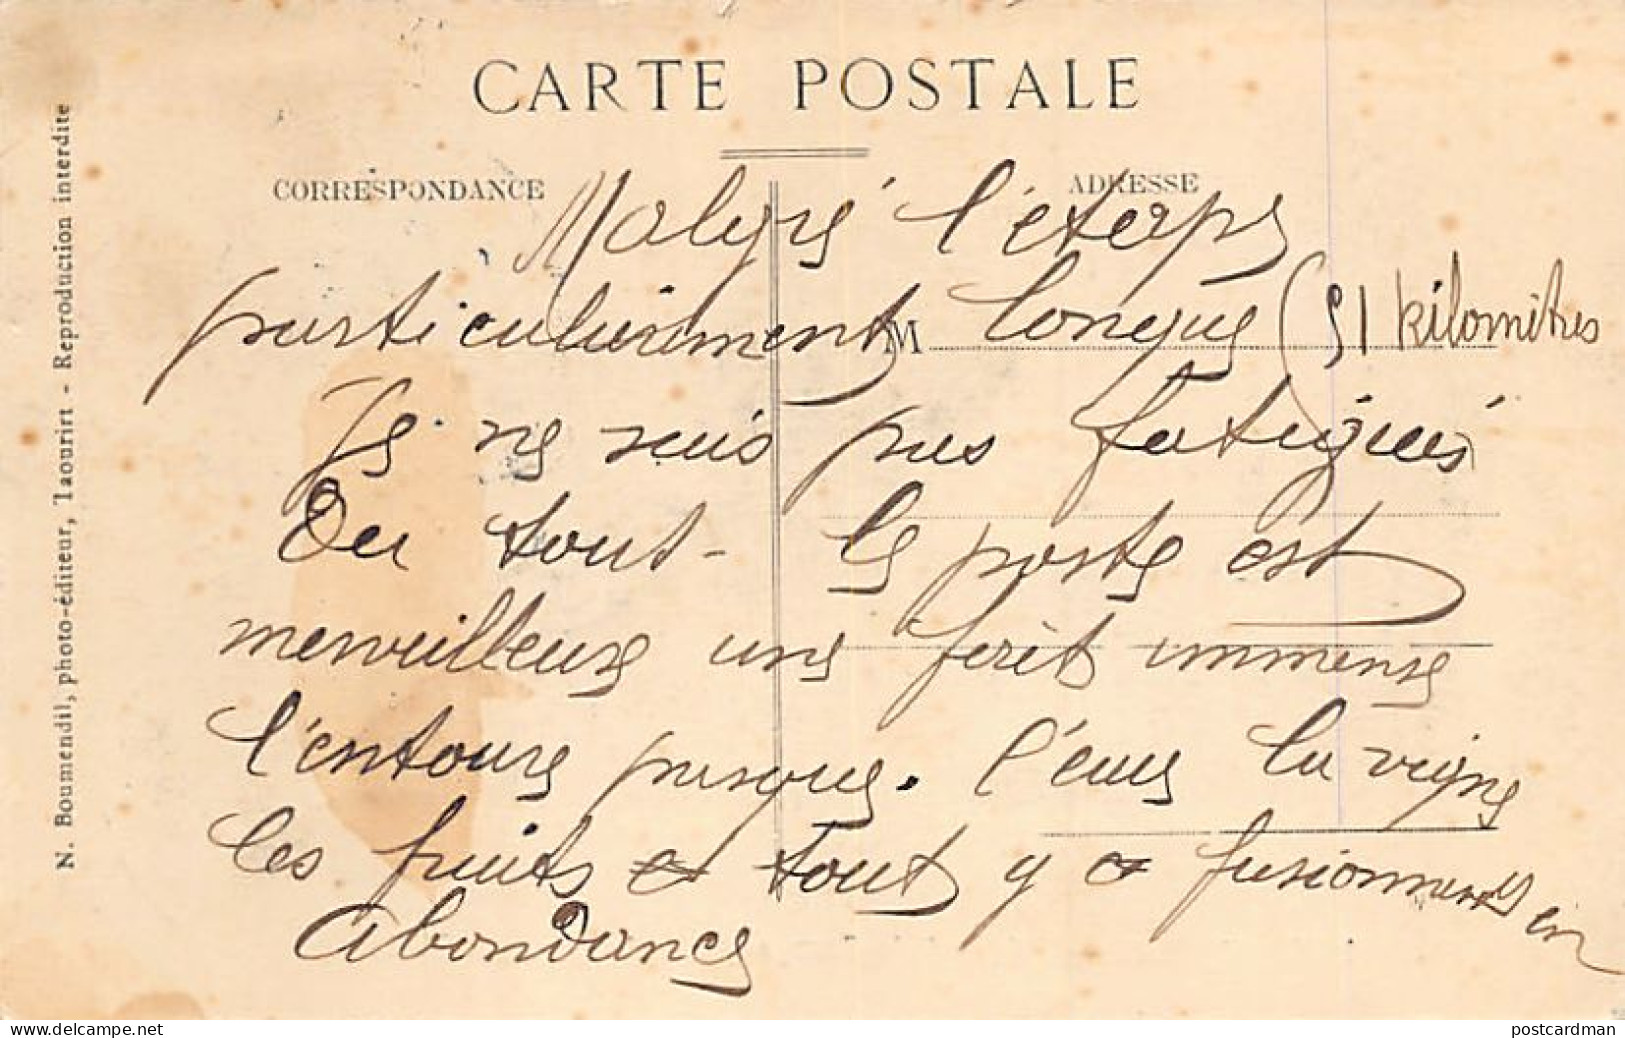 CARTE POSTALE
CORRESPONDANCE
ADRESSE
Malgré l'étape
particulièrement longue (51 kilomètres
Je ne suis pas fatigué
Du tout - le poste est
merveilleuse une forêt immense
l'entoure presque. l'eau la vigne
les fruits et tout y a en
abondance
M
N. Boumendil, photo-éditeur, Taourirt - Reproduction interdite
delcampe.net
postcardman